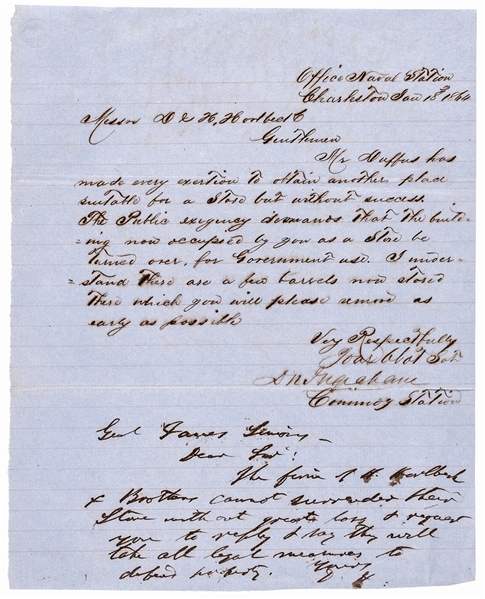 Office Naval Station
Charleston Jan 18th 1864
Messrs D & H, Horlbeck
Gentlemen
Mr Huffus has
made every exertion to obtain another place
suitable for a Store but without success
The Public exigency demands that the build-
-ing now occupied by you as a Store be
turned over, for Government use. I under-
-stand there are a few barrels now stored
there which you will please remove as
early as possible
Very Respectfully
Your Obdt Svt
D N Ingraham
Commdg Station
Genl James Simons -
Dear Sir!
The firm of H Horlbeck
& Brothers cannot surrender their
Store without great loss & request
you to reply & say they will
take all legal measures to
defend property. Yours